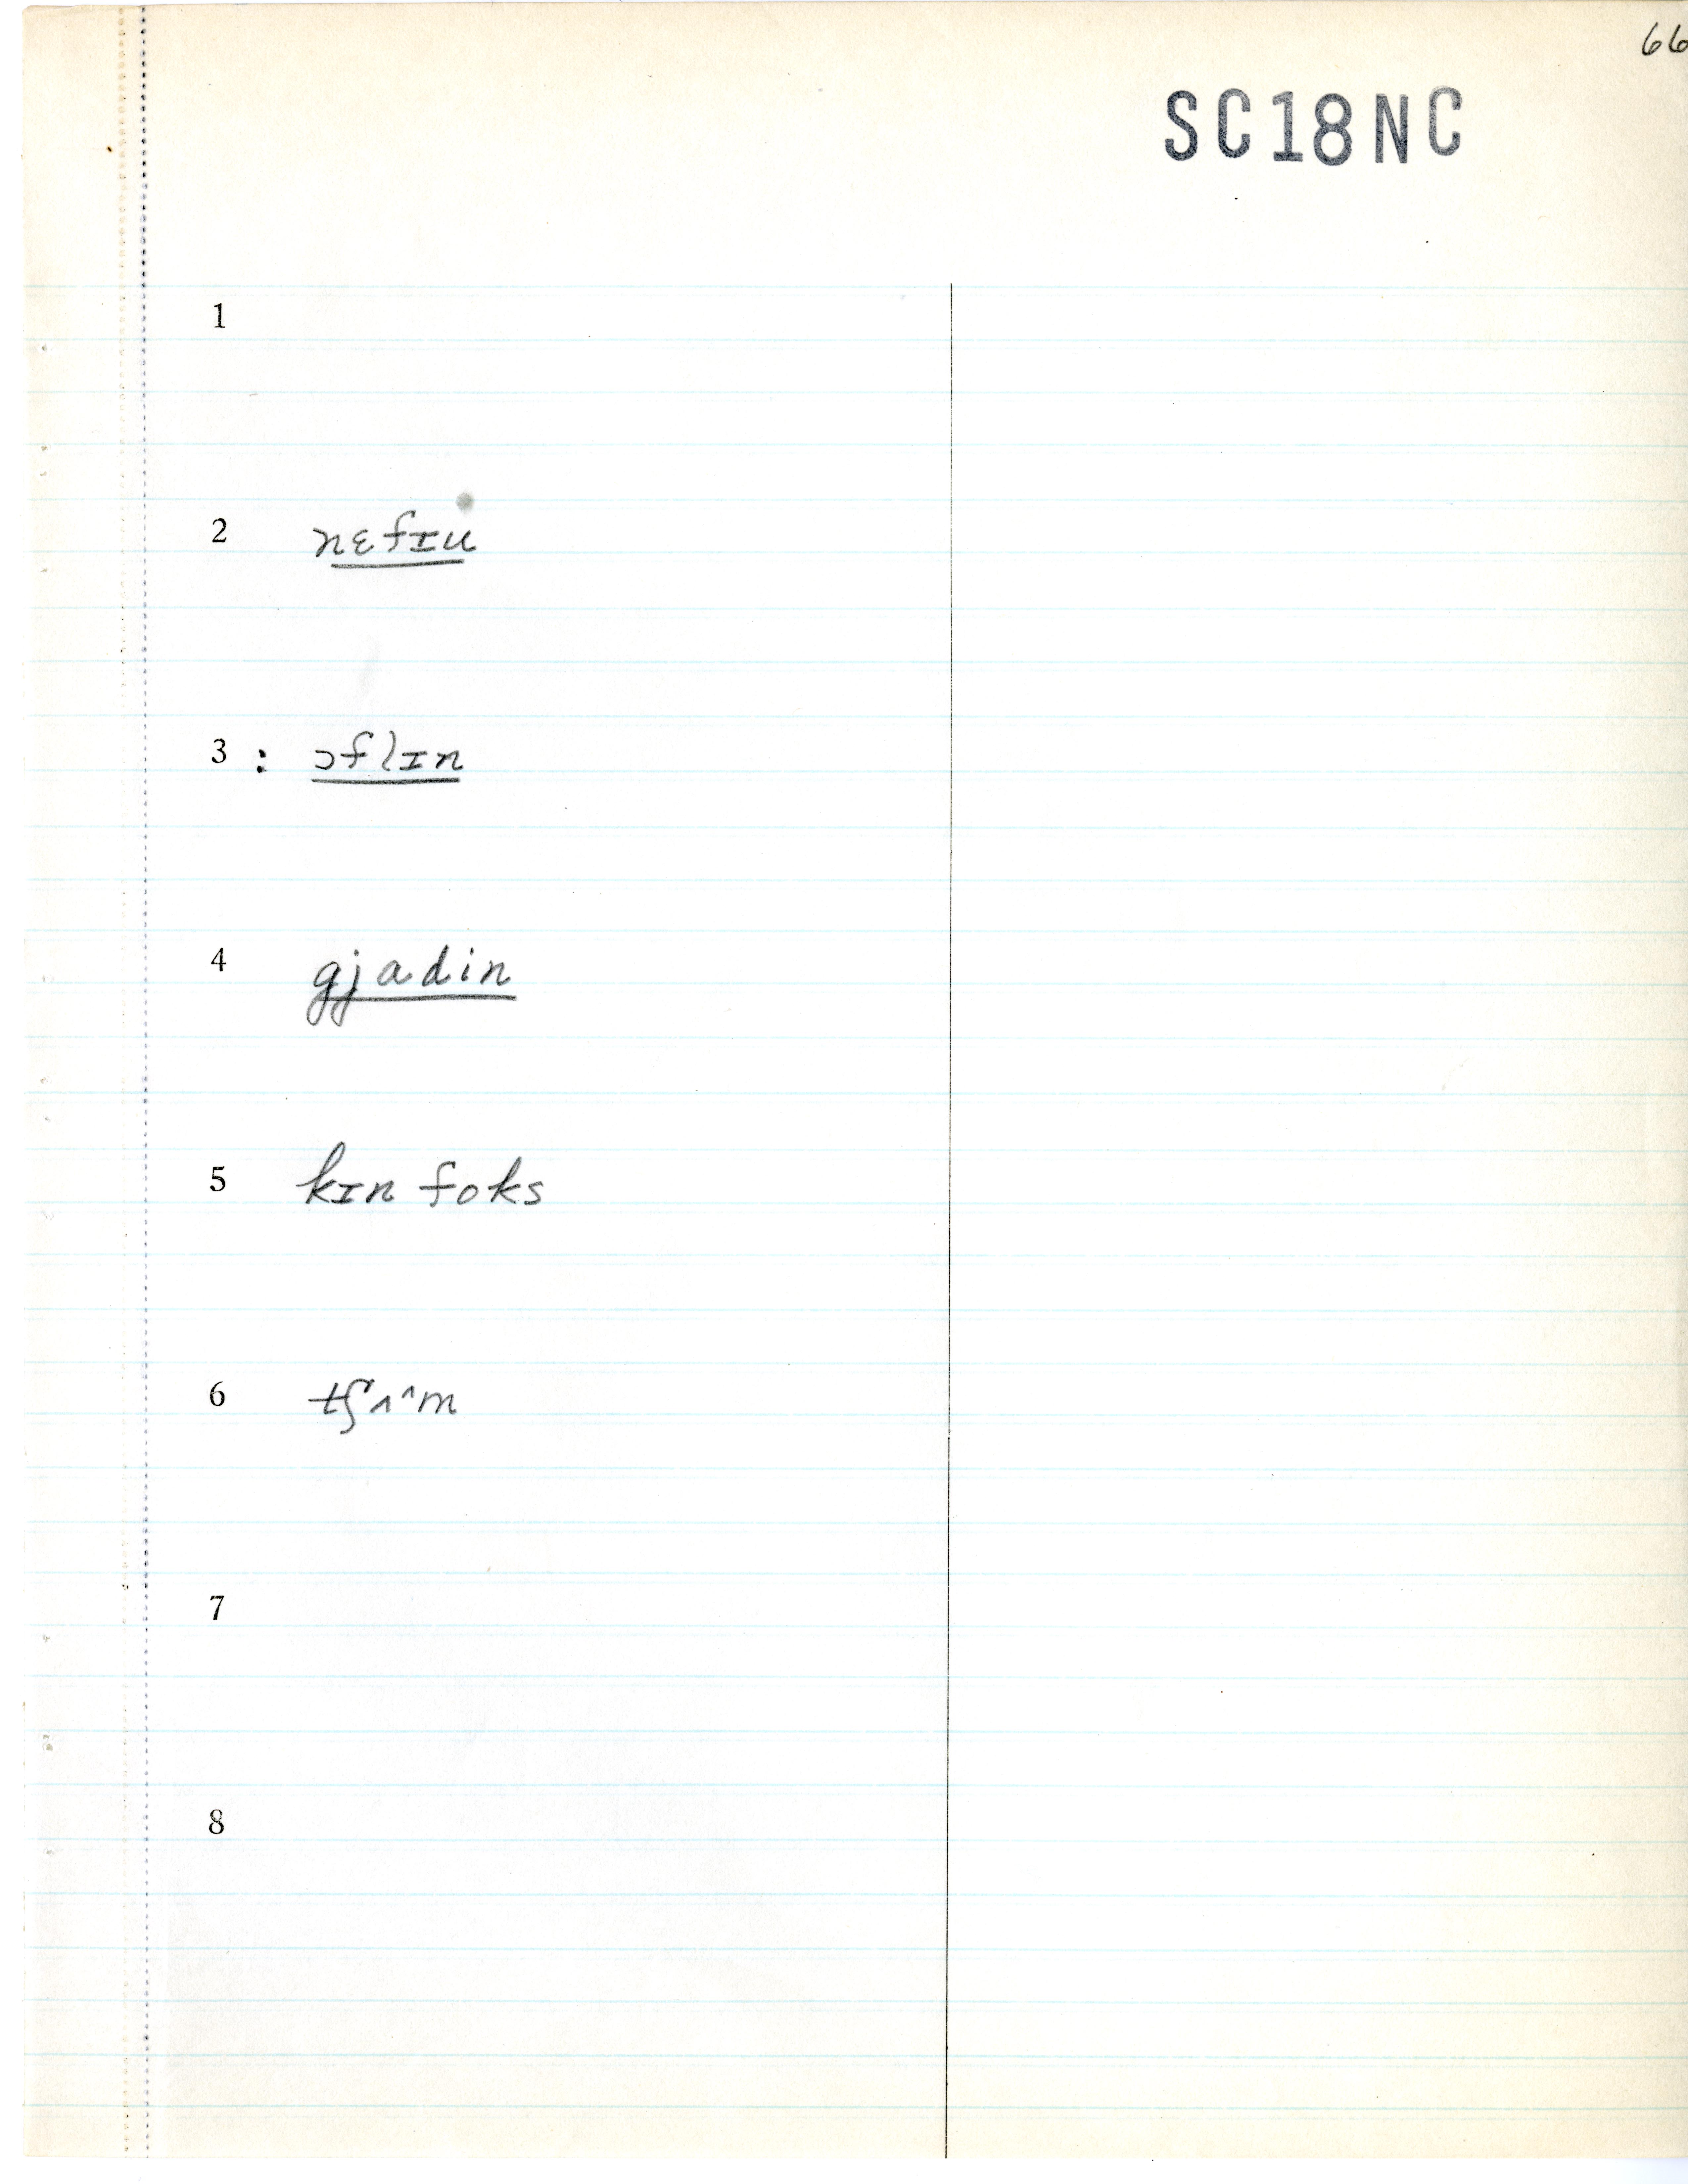 66
SC18NC
1
2 nɛfɪu
3 : ɔflɪn
4 gjadin
5 kɪn foks
6 tʃʌ^m
7
8